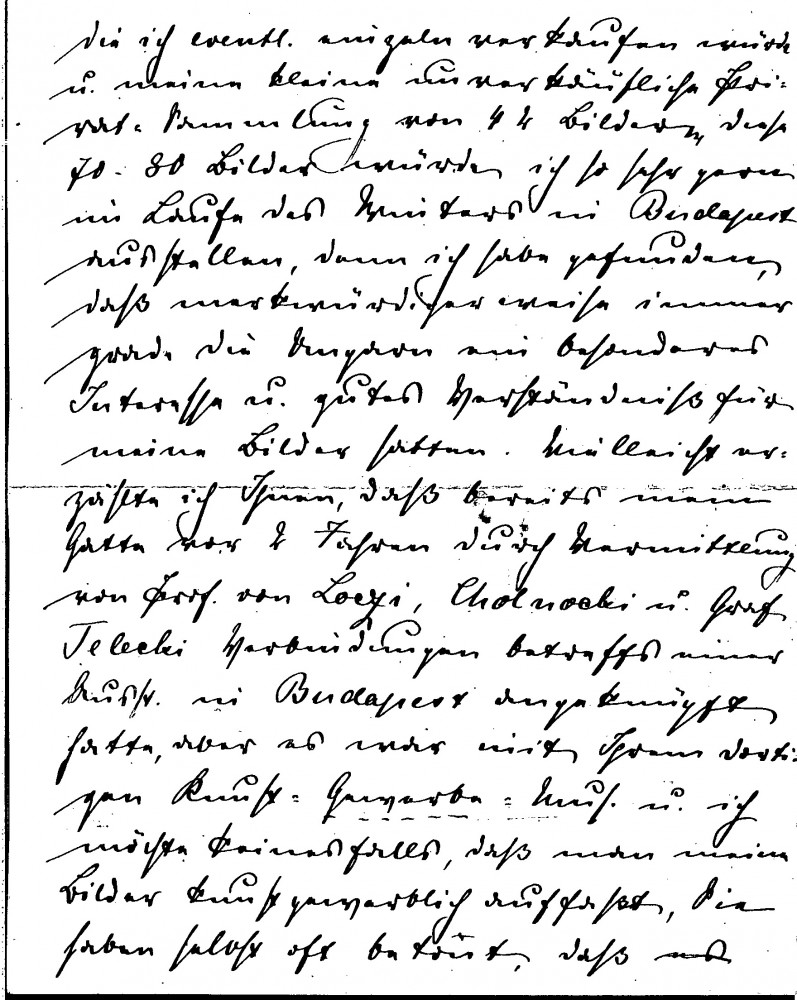 die ich eventl. einzeln verkaufen würde
u. meine kleine unverkäufliche Pri-
vat-Sammlung von 42 Bildern, diese
70-80 Bilder würde ich so sehr gern
im Laufe des Winters in Budapest
ausstellen, denn ich habe gefunden,
daß merkwürdigerweise immer
grade die Ungarn ein besonderes
Interesse u. gutes Verständniß für
meine Bilder hatten. Vielleicht er-
zählte ich Ihnen, daß bereits mein
Gatte vor 2 Jahren durch Vermittlung
von Prof. von Loczi, Cholnocki u. Graf
Telecki Verbindungen betreffs einer
Ausst. in Budapest angeknüpft
hatte, aber es war mit Ihrem dorti-
gen Kunst-Gewerbe-Mus. u. ich
möchte keinesfalls, daß man meine
Bilder kunstgewerblich auffaßt, Sie
haben selbst oft betont, daß es